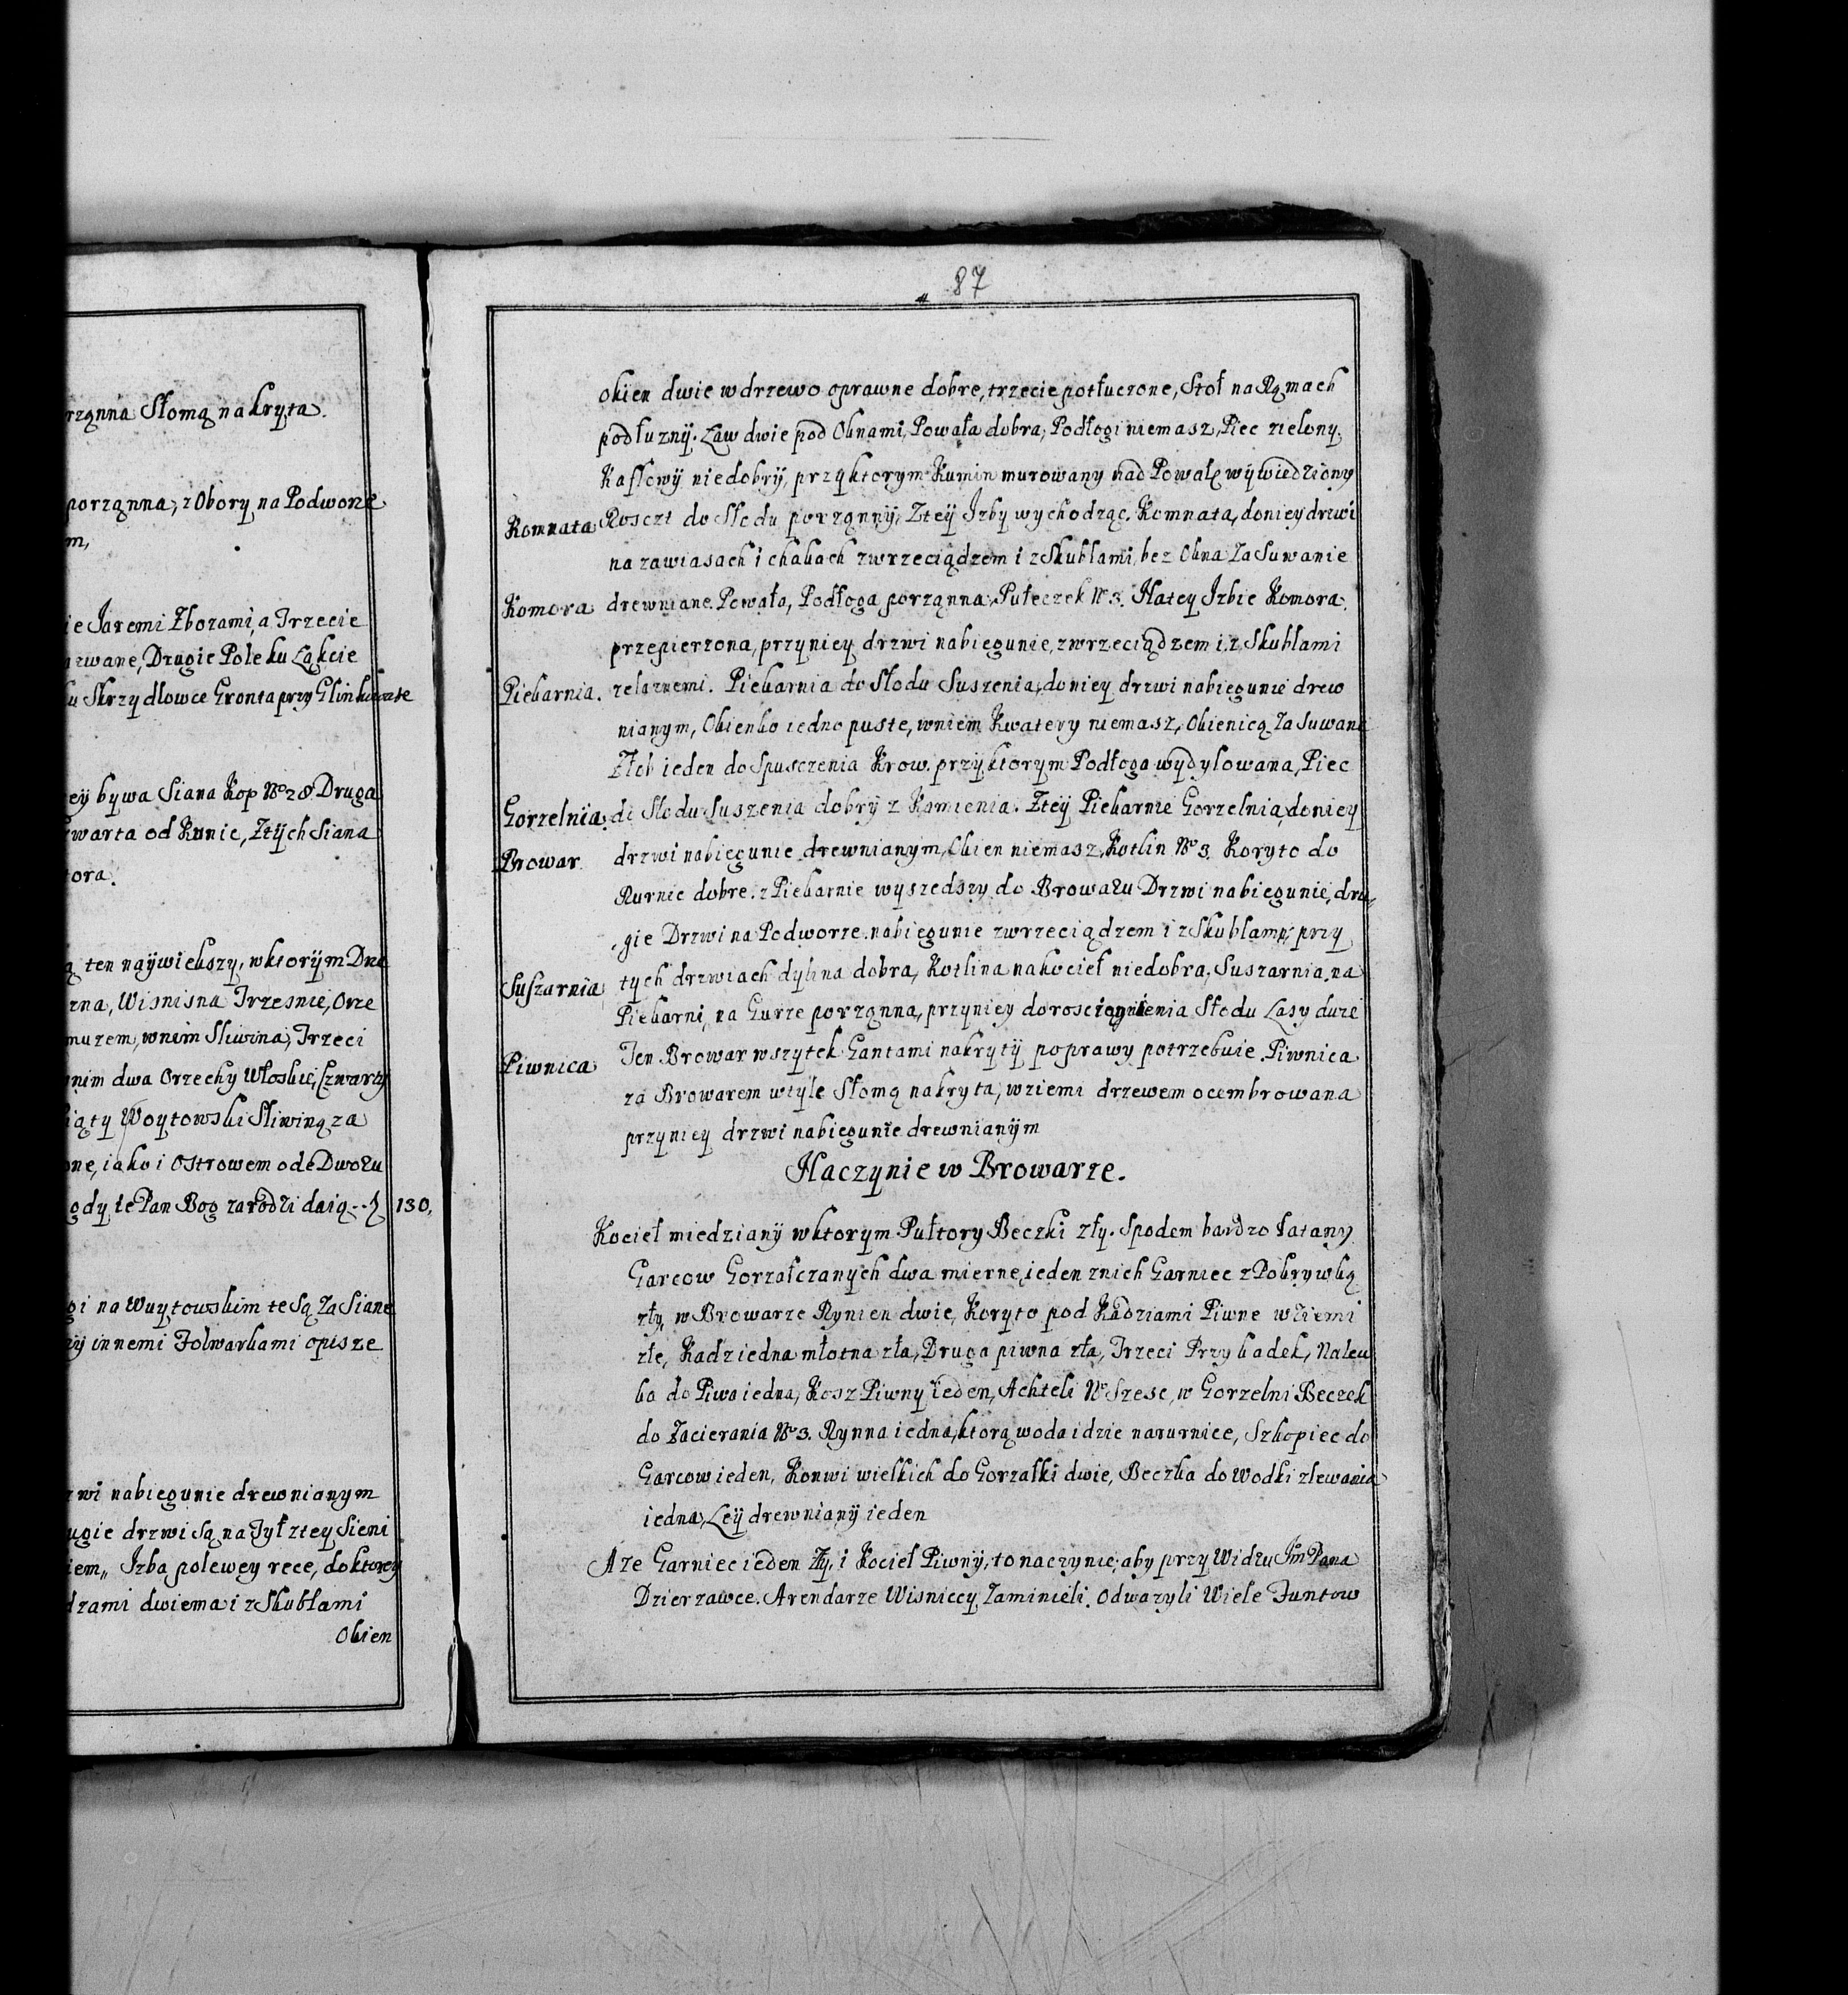 rząnna Słomą nakryta.
porząnna, z Obory na Podworze
m,
ie Jaremi Zborami, a Trzecie
zwane, Drugie Pole ku Ląkcie
ku Skrzydlowce Gronta przy Glinku
ey bywa Siana Kop No 28 Druga
warta od Kunic, Ztych Siana
tora.
ą ten naywiekszy, wktorym Drze
zna, Wisnisna Trzesnie, Orze
murem, wnim Sliwina, Trzeci
nim dwa Orzechy Włoskie, Czwarty
iąty Woytowski Sliwiną za
one, iako i Ostrowem ode Dworu
gdy te Pan Bog zarodzi daią 130,
gi na Wuytowskim te Są Za Siane
ny innemi Folwarkami opisze
rwi nabiegunie drewnianym
ugie drzwi są na Tył ztey Sieni
iem,, Izba polewey rece, do ktorey
dzami dwiema i z Skubłami
Okien
87
okien dwie w drzewo oprawne dobre, trzecie potłuczone, Stoł na Rąmach
podłuzny. Law dwie pod Oknami, Powała dobra, Podłogi niemasz, Piec zielony,
Kaflowy niedobry, przyktorym Kumin murowany nad Powałę wywiedziony
Komnata Roszt do Słodu porząnny, Ztey Izby wychodząc. Komnata, doniey drzwi
na zawiasach i chakach zwrzeciądzem i z Skubłami, bez Okna Zasuwanie
Komora drewniane. Powała, Podłoga porząnna, Pułeczek No 3. Natey Izbie Komora.
przepierzona, przyniey drzwi nabiegunie, zwrzeciądzem i z Skubłami
Piekarnia. zelaznemi. Piekarnia do Słodu Suszenia, doniey drzwi nabiegunie drew
nianym, Okienko iedno puste, wniem Kwatery niemasz, Okienicą Zasuwane
Złob ieden do Spuszczenia Krow. przyktorym Podłoga wydylowana, Piec
Gorzelnia. do Słodu Suszenia dobry z Kamienia. Ztey Piekarnie Gorzelnia, doniey
Browar. drzwi nabiegunie drewnianym, Okien niemasz, Kotlin No 3. Koryto do
Rurnic dobre. z Piekarnie wyszedszy do Browaru Drzwi nabiegunie, dru,,
,gie Drzwi na Podworze. nabiegunie zwrzeciądzem i z Skublami, przy
Suszarnia tych drzwiach dylina dobra, Kotlina na kocieł niedobra, Suszarnia, na
Piekarni, na Gurze porząnna, przyniey dorosciągnienia Słodu Lasy duze
Piwnica Ten Browar wszytek Gantami nakryty poprawy potrzebuie. Piwnica
za Browarem wtyle Słomą nakryta, wziemi drzewem ocembrowana
przyniey drzwi nabiegunie drewnianym
Naczynie w Browarze.
Kocieł miedziany wktorym Pułtory Beczki zły. Spodem bardzo łatany
Garcow Gorzałczanych dwa mierne, ieden znich Garniec z Pokrywką
zły, w Browarze Rynien dwie, Koryto pod Kadziami Piwne wziemi
złe, Kadz iedna młotna zła, Druga piwna zła, Trzeci Przykadek, Nalew
ka do Piwa iedna, Kosz Piwny ieden, Achteli No Szesc, w Gorzelni Beczek
do Zacierania No 3. Rynna iedna, ktorą woda idzie na rurnice, Szkopiec do
Garcow ieden, Konwi wielkich do Gorzałki dwie, Beczka do Wodki zlewania
iedna, Ley drewniany ieden
A ze Garniec ieden Zły, i Kocieł Piwny, to naczynie, aby przy Widzu Jm Pana
Dzierzawce. Arendarze Wisniccy Zaminieli. Odwazyli Wiele Funtow